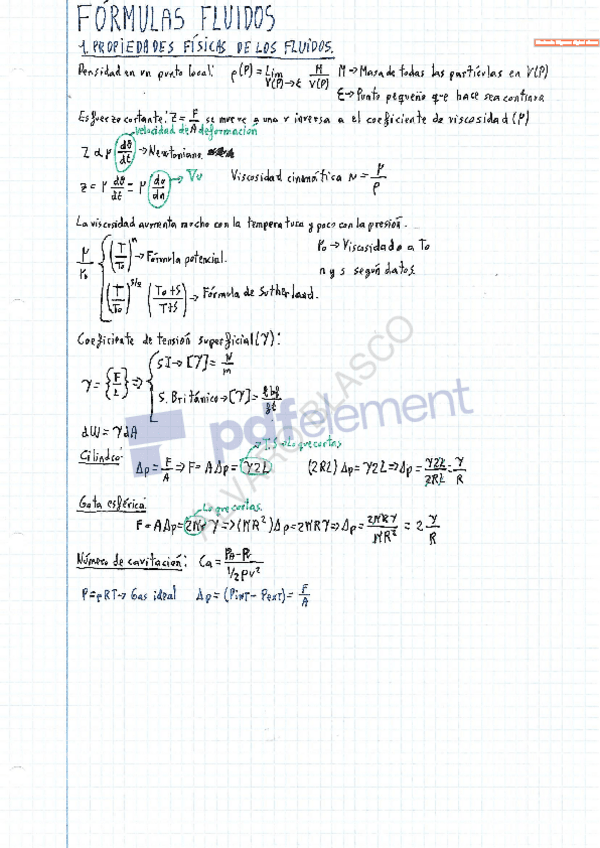 FÓRMULAS FLUIDOS
1. PROPIEDADES FÍSICAS DE LOS FLUIDOS.
Densidad en un punto local: ρ(P) = Lim V(P)→ε M/V(P) M → Masa de todas las partículas en V(P)
ε → Punto pequeño que hace sea continua
Esfuerzo cortante: τ = F/A se mueve a una v inversa a el coeficiente de viscosidad (μ)
velocidad de deformación
τ α μ dθ/dt → Newtoniano
τ = μ dθ/dt = μ dv/dn → ∇v Viscosidad cinemática ν = μ/ρ
La viscosidad aumenta mucho con la temperatura y poco con la presión.
μ/μ₀ { (T/T₀)ⁿ → Fórmula potencial. μ₀ → Viscosidad a T₀
(T/T₀)^3/2 (T₀+S / T+S) → Fórmula de Sutherland. n y s según datos.
Coeficiente de tensión superficial (γ):
γ = {F/L} ⇒ { SI → [γ] = N/m
S. Británico → [γ] = lbf/ft
dW = γdA
Cilindro: Δp = F/A ⇒ F = AΔp = γ2L (2RL) Δp = γ2L ⇒ Δp = γ2L/2RL = γ/R
Gota esférica: Lo que cortas.
F = AΔp = 2πr γ ⇒ (πR²) Δp = 2πRγ ⇒ Δp = 2πRγ/πR² = 2 γ/R
Número de cavitación: Ca = Pa - Pv / 1/2 ρv²
P = ρRT → Gas ideal Δp = (Pint - Pext) = F/A
pdfelement
ALVARO BLASCO